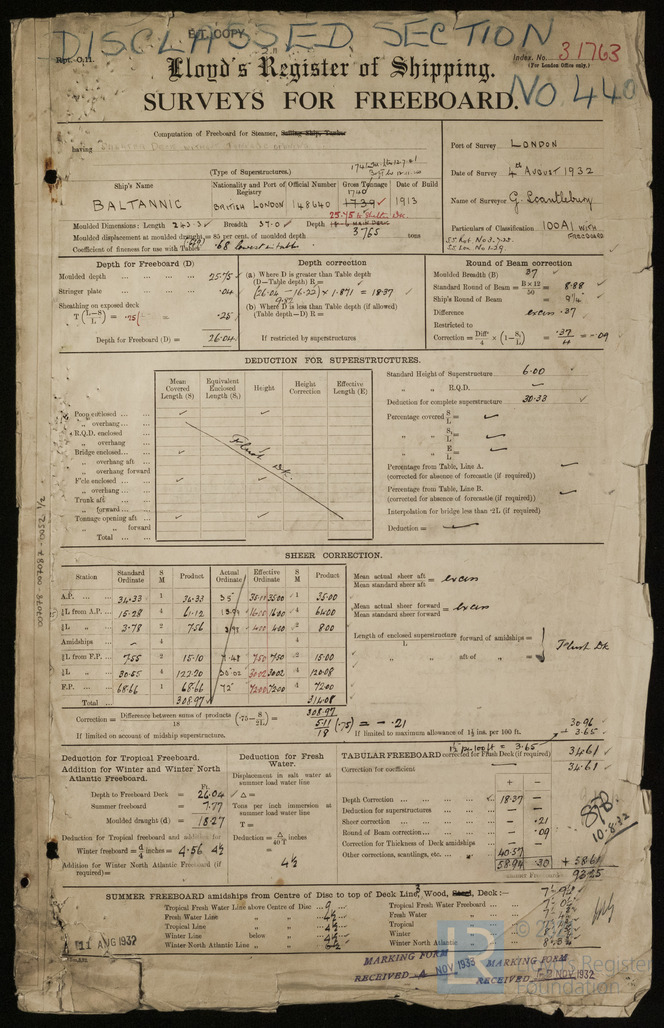 E.T. COPY
DISCLASSED SECTION
Rpt. C.11.
Index. No. 31763
(For London Office only.)
Lloyd's Register of Shipping.
No. 440
SURVEYS FOR FREEBOARD.
Computation of Freeboard for Steamer, Sailing Ship, Tanker
having
(Type of Superstructures.)
Port of Survey LONDON
Date of Survey 4th AUGUST 1932
Name of Surveyor G. Scantlebury
Particulars of Classification 100A1 WITH FREEBOARD
Ship's Name
Nationality and Port of Registry
Official Number
Gross Tonnage
Date of Build
BALTANNIC
BRITISH LONDON
148640
1740
1739
1913
Moulded Dimensions: Length 243.3 Breadth 37.0 Depth
25.75 to Shelter Dk.
Moulded displacement at moulded draught = 85 per cent. of moulded depth 3765 tons
Coefficient of fineness for use with Tables .68 lowest in table
Depth for Freeboard (D)
Moulded depth ... 25.75
Stringer plate ... .04
Sheathing on exposed deck
T (L-S/L) = .25 .25
Depth for Freeboard (D) = 26.04
Depth correction
(a) Where D is greater than Table depth
(D—Table depth) R =
(26.04 - 16.22) × 1.871 = 18.37
9.82
(b) Where D is less than Table depth (if allowed)
(Table depth—D) R =
If restricted by superstructures
Round of Beam correction
Moulded Breadth (B) 37
Standard Round of Beam = B×12/50 = 8.88
Ship's Round of Beam = 9 1/4
Difference excess .37
Restricted to
Correction = Diff/4 × (1-S1/L) = .37/4 = -.09
DEDUCTION FOR SUPERSTRUCTURES.
Mean Covered Length (S)
Equivalent Enclosed Length (S1)
Height
Height Correction
Effective Length (E)
Poop enclosed
„ overhang
R.Q.D. enclosed
„ overhang
Bridge enclosed
„ overhang aft
„ overhang forward
F'cle enclosed
„ overhang
Trunk aft
„ forward
Tonnage opening aft
„ „ forward
Total
Flush Dk.
Standard Height of Superstructure 6.00
„ „ R.Q.D. —
Deduction for complete superstructure 30.33
Percentage covered S/L =
„ „ S1/L =
„ „ E/L =
Percentage from Table, Line A.
(corrected for absence of forecastle (if required))
Percentage from Table, Line B.
(corrected for absence of forecastle (if required))
Interpolation for bridge less than .2L (if required)
Deduction =
SHEER CORRECTION.
Station Standard Ordinate S M Product Actual Ordinate Effective Ordinate S M Product
A.P. 34.33 1 34.33 35 35.00 35.00 1 35.00
⅙L from A.P. 15.28 4 61.12 16.00 4 64.00
⅓L „ 3.78 2 7.56 4.00 4.00 2 8.00
Amidships — 4 4
⅓L from F.P. 7.55 2 15.10 7.48 7.50 7.50 2 15.00
⅙L „ 30.55 4 122.20 30.02 30.02 30.02 4 120.08
F.P. 68.66 1 68.66 72 72.00 72.00 1 72.00
Total 308.97 314.08
308.97
Mean actual sheer aft / Mean standard sheer aft = excess
Mean actual sheer forward / Mean standard sheer forward = excess
Length of enclosed superstructure / L forward of amidships =
„ „ aft of „ =
Flush Dk
Correction = Difference between sums of products / 18 (.75 - S/2L) = 5.11/18 (.75) = - .21
If limited on account of midship superstructure.
If limited to maximum allowance of 1½ ins. per 100 ft.
1½ per 100 ft = 3.65
30.96
+ 3.65
Deduction for Tropical Freeboard.
Addition for Winter and Winter North Atlantic Freeboard.
Ft.
Depth to Freeboard Deck = 26.04
Summer freeboard = 7.77
Moulded draught (d) = 18.27
Deduction for Tropical freeboard and addition for
Winter freeboard = d/4 inches = 4.56 4½
Addition for Winter North Atlantic Freeboard (if required) =
Deduction for Fresh Water.
Displacement in salt water at summer load water line
Δ =
Tons per inch immersion at summer load water line
T =
Deduction = Δ/40T inches
=
4½
TABULAR FREEBOARD corrected for Flush Deck (if required) 34.61
Correction for coefficient 34.61
+ -
Depth Correction 18.37 —
Deduction for superstructures — —
Sheer correction — .21
Round of Beam correction — .09
Correction for Thickness of Deck amidships — —
Other corrections, scantlings, etc. 40.57
58.94 .30 + 58.64
Summer Freeboard = 93.25
10.8.32
SUMMER FREEBOARD amidships from Centre of Disc to top of Deck Line, Wood, Steel, Deck:—
Tropical Fresh Water Line above Centre of Disc 9
Fresh Water Line „ „ 4½
Tropical Line „ „ 4½
Winter Line below „ 4½
Winter North Atlantic Line „ „
Tropical Fresh Water Freeboard
Fresh Water „
Tropical „
Winter „
Winter North Atlantic „
11 AUG 1932
MARKING FORM
RECEIVED 4 NOV 1933
MARKING FORM
RECEIVED NOV 1932
LR
Lloyd's Register
Foundation